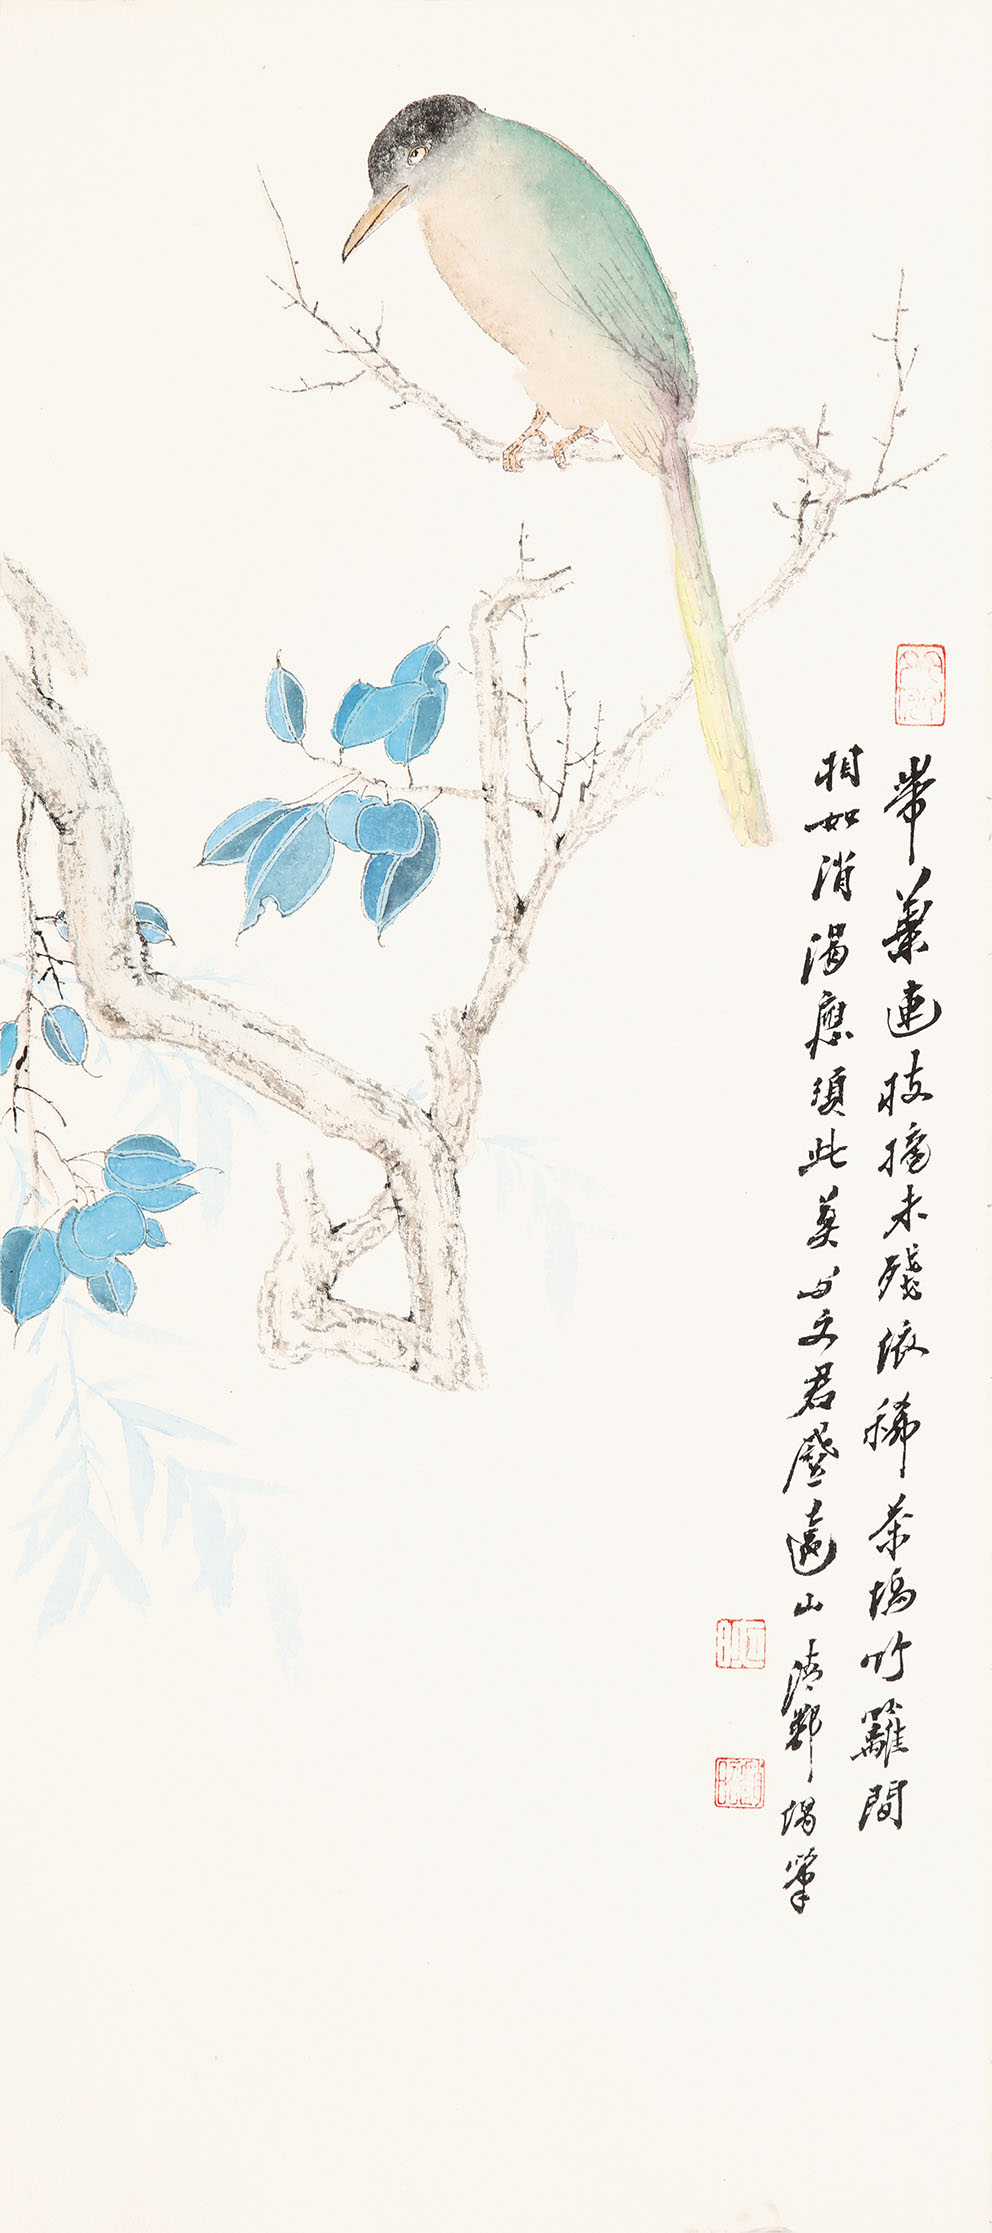 帶葉連枝摘未殘依稀茶塢竹籬間
相如消渴應須此莫与文君蹙遠山
筆